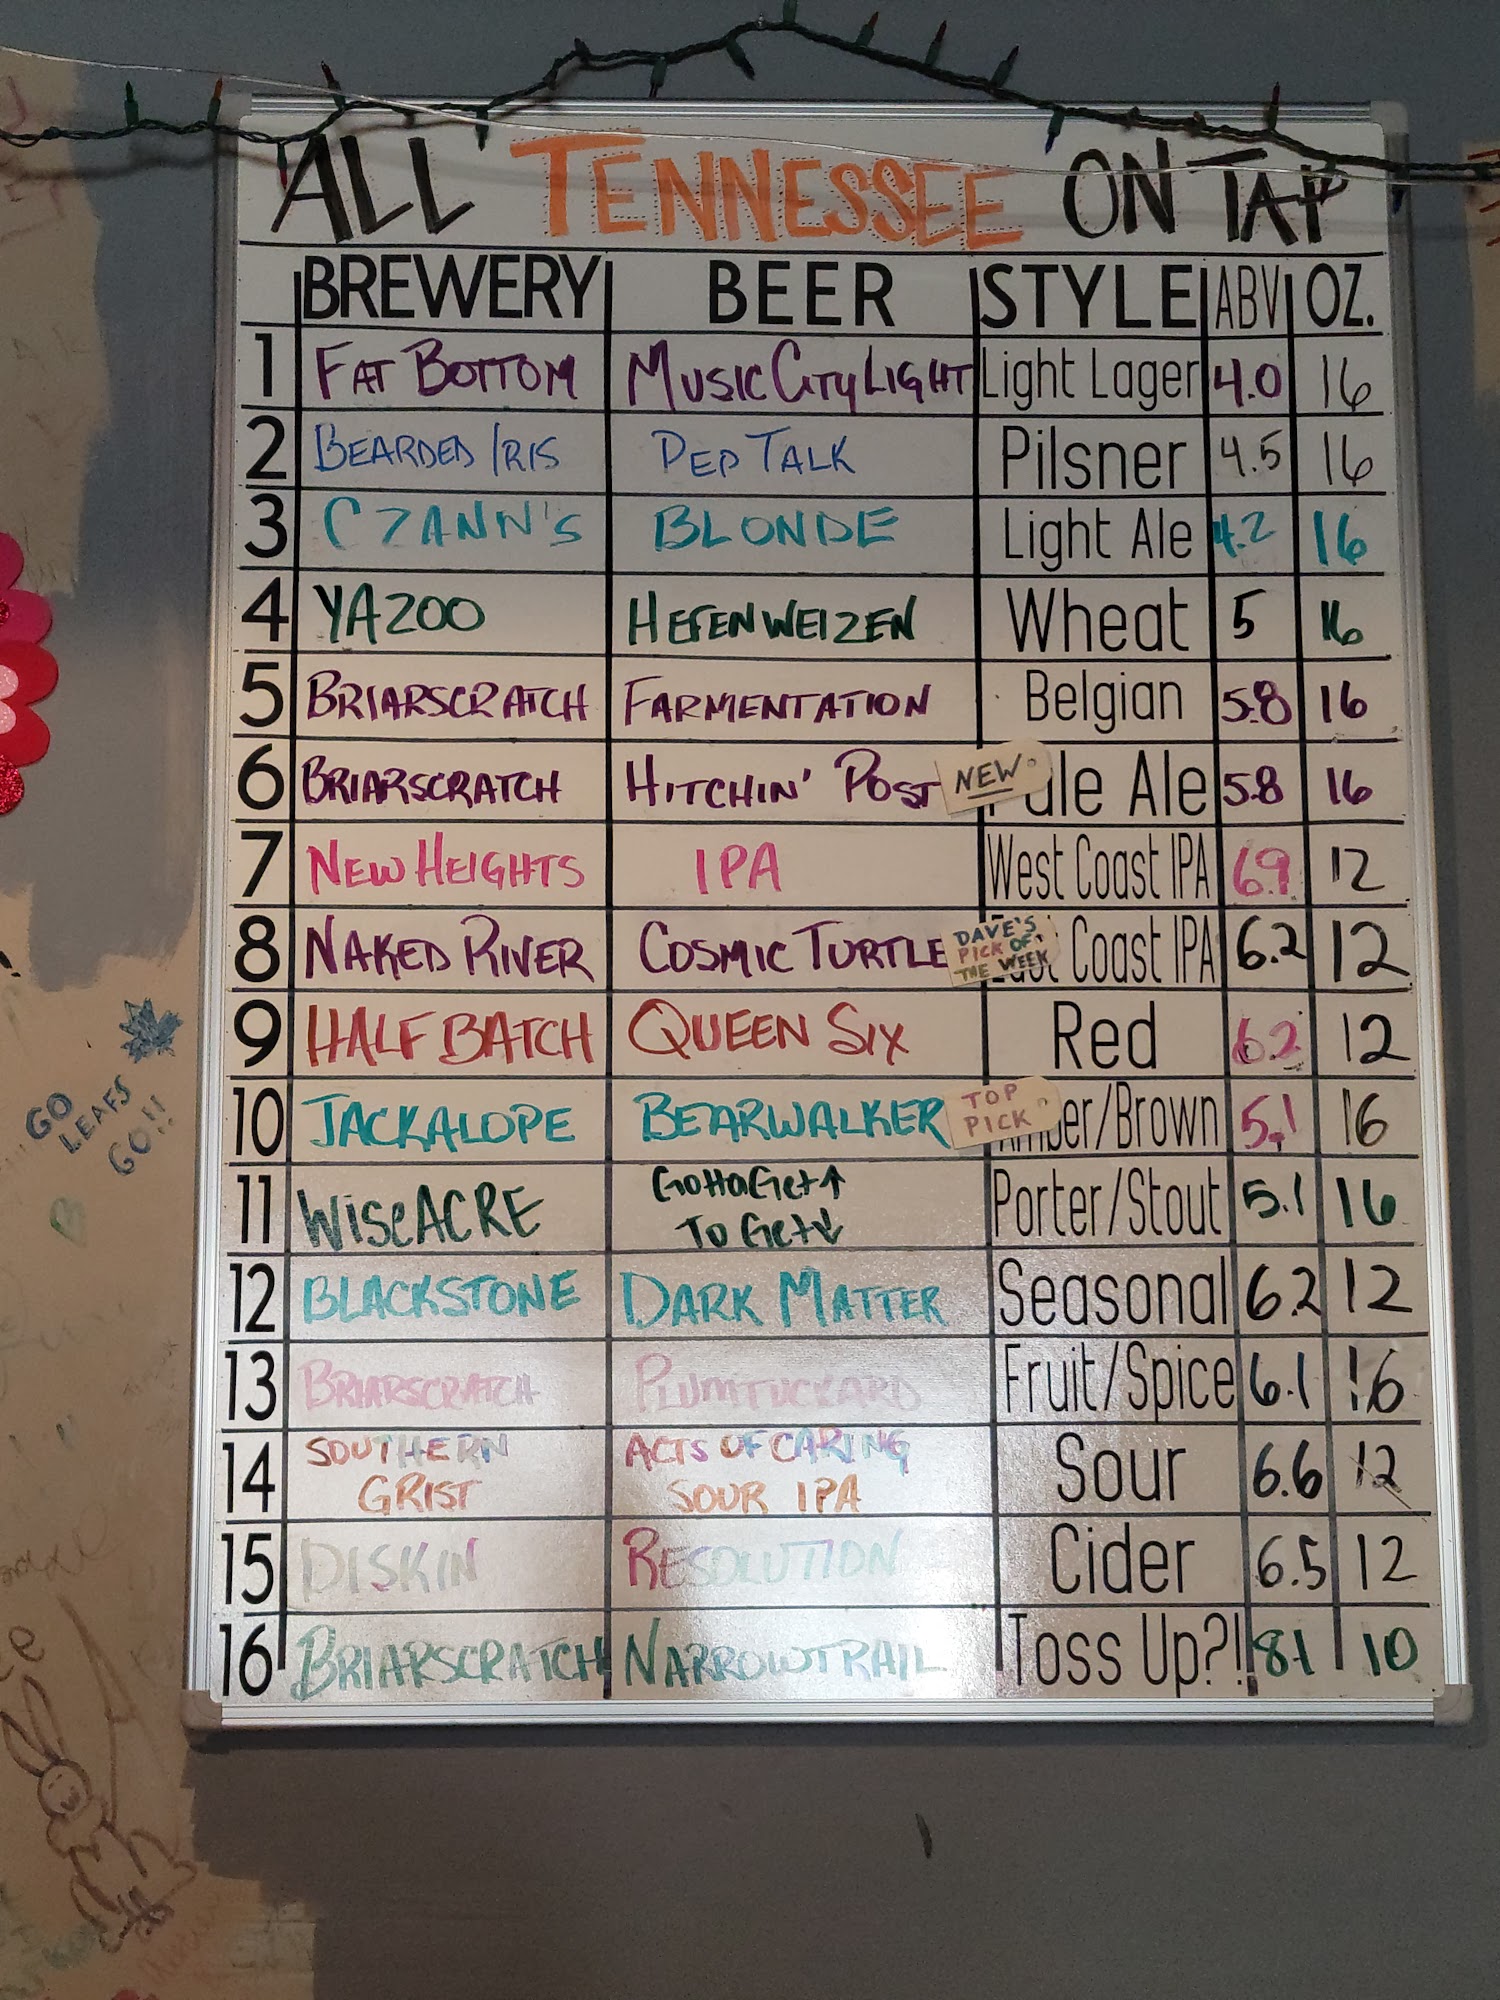 ALL TENNESSEE ON TAP
BREWERY BEER STYLE ABV OZ.
1 FAT BOTTOM MUSIC CITY LIGHT Light Lager 4.0 16
2 BEARDED IRIS PEP TALK Pilsner 4.5 16
3 CZANN'S BLONDE Light Ale 4.2 16
4 YAZOO HEFENWEIZEN Wheat 5 16
5 BRIARSCRATCH FARMENTATION Belgian 5.8 16
6 BRIARSCRATCH HITCHIN' POST NEW Pale Ale 5.8 16
7 NEW HEIGHTS IPA West Coast IPA 6.9 12
8 NAKED RIVER COSMIC TURTLE DAVE'S PICK OF THE WEEK East Coast IPA 6.2 12
9 HALF BATCH QUEEN SIX Red 6.2 12
10 JACKALOPE BEARWALKER TOP PICK Amber/Brown 5.1 16
11 WISEACRE GOTTA GET ↑ TO GET ↓ Porter/Stout 5.1 16
12 BLACKSTONE DARK MATTER Seasonal 6.2 12
13 BRIARSCRATCH PLUMTUCKARD Fruit/Spice 6.1 16
14 SOUTHERN GRIST ACTS OF CARING SOUR IPA Sour 6.6 12
15 DISKIN RESOLUTION Cider 6.5 12
16 BRIARSCRATCH NARROWTRAIL Toss Up?! 8.1 10
GO
LEAFS
GO!!